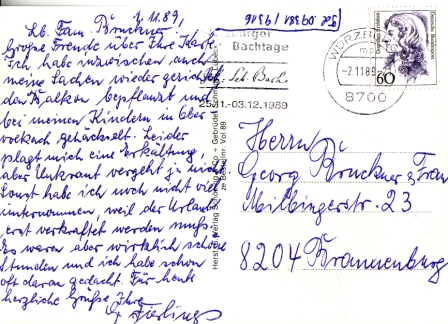 2.11.89,
Lb. Fam. Bruckner!
Große Freude über Ihre Karte.
Ich habe inzwischen auch
meine Sachen wieder gerichtet,
den Balkon bepflanzt und
bei meinen Kindern in Ober
volkach gehäckselt. Leider
plagt mich eine Erkältung,
aber Unkraut vergeht ja nicht.
Sonst habe ich noch nicht viel
unternommen, weil der Urlaub
erst verkraftet werden muß.
Es waren aber wirklich schöne
Stunden und ich habe schon
oft daran gedacht. Für heute
herzliche Grüße Ihre
Fierlings
Bachtage
Joh. Seb. Bach
25.11.-03.12.1989
WÜRZBURG
-2.11.89
8700
60
Deutsche Bundespost
Herrn
Georg Bruckner u. Frau
Milbingerstr. 23
8204 Brannenburg